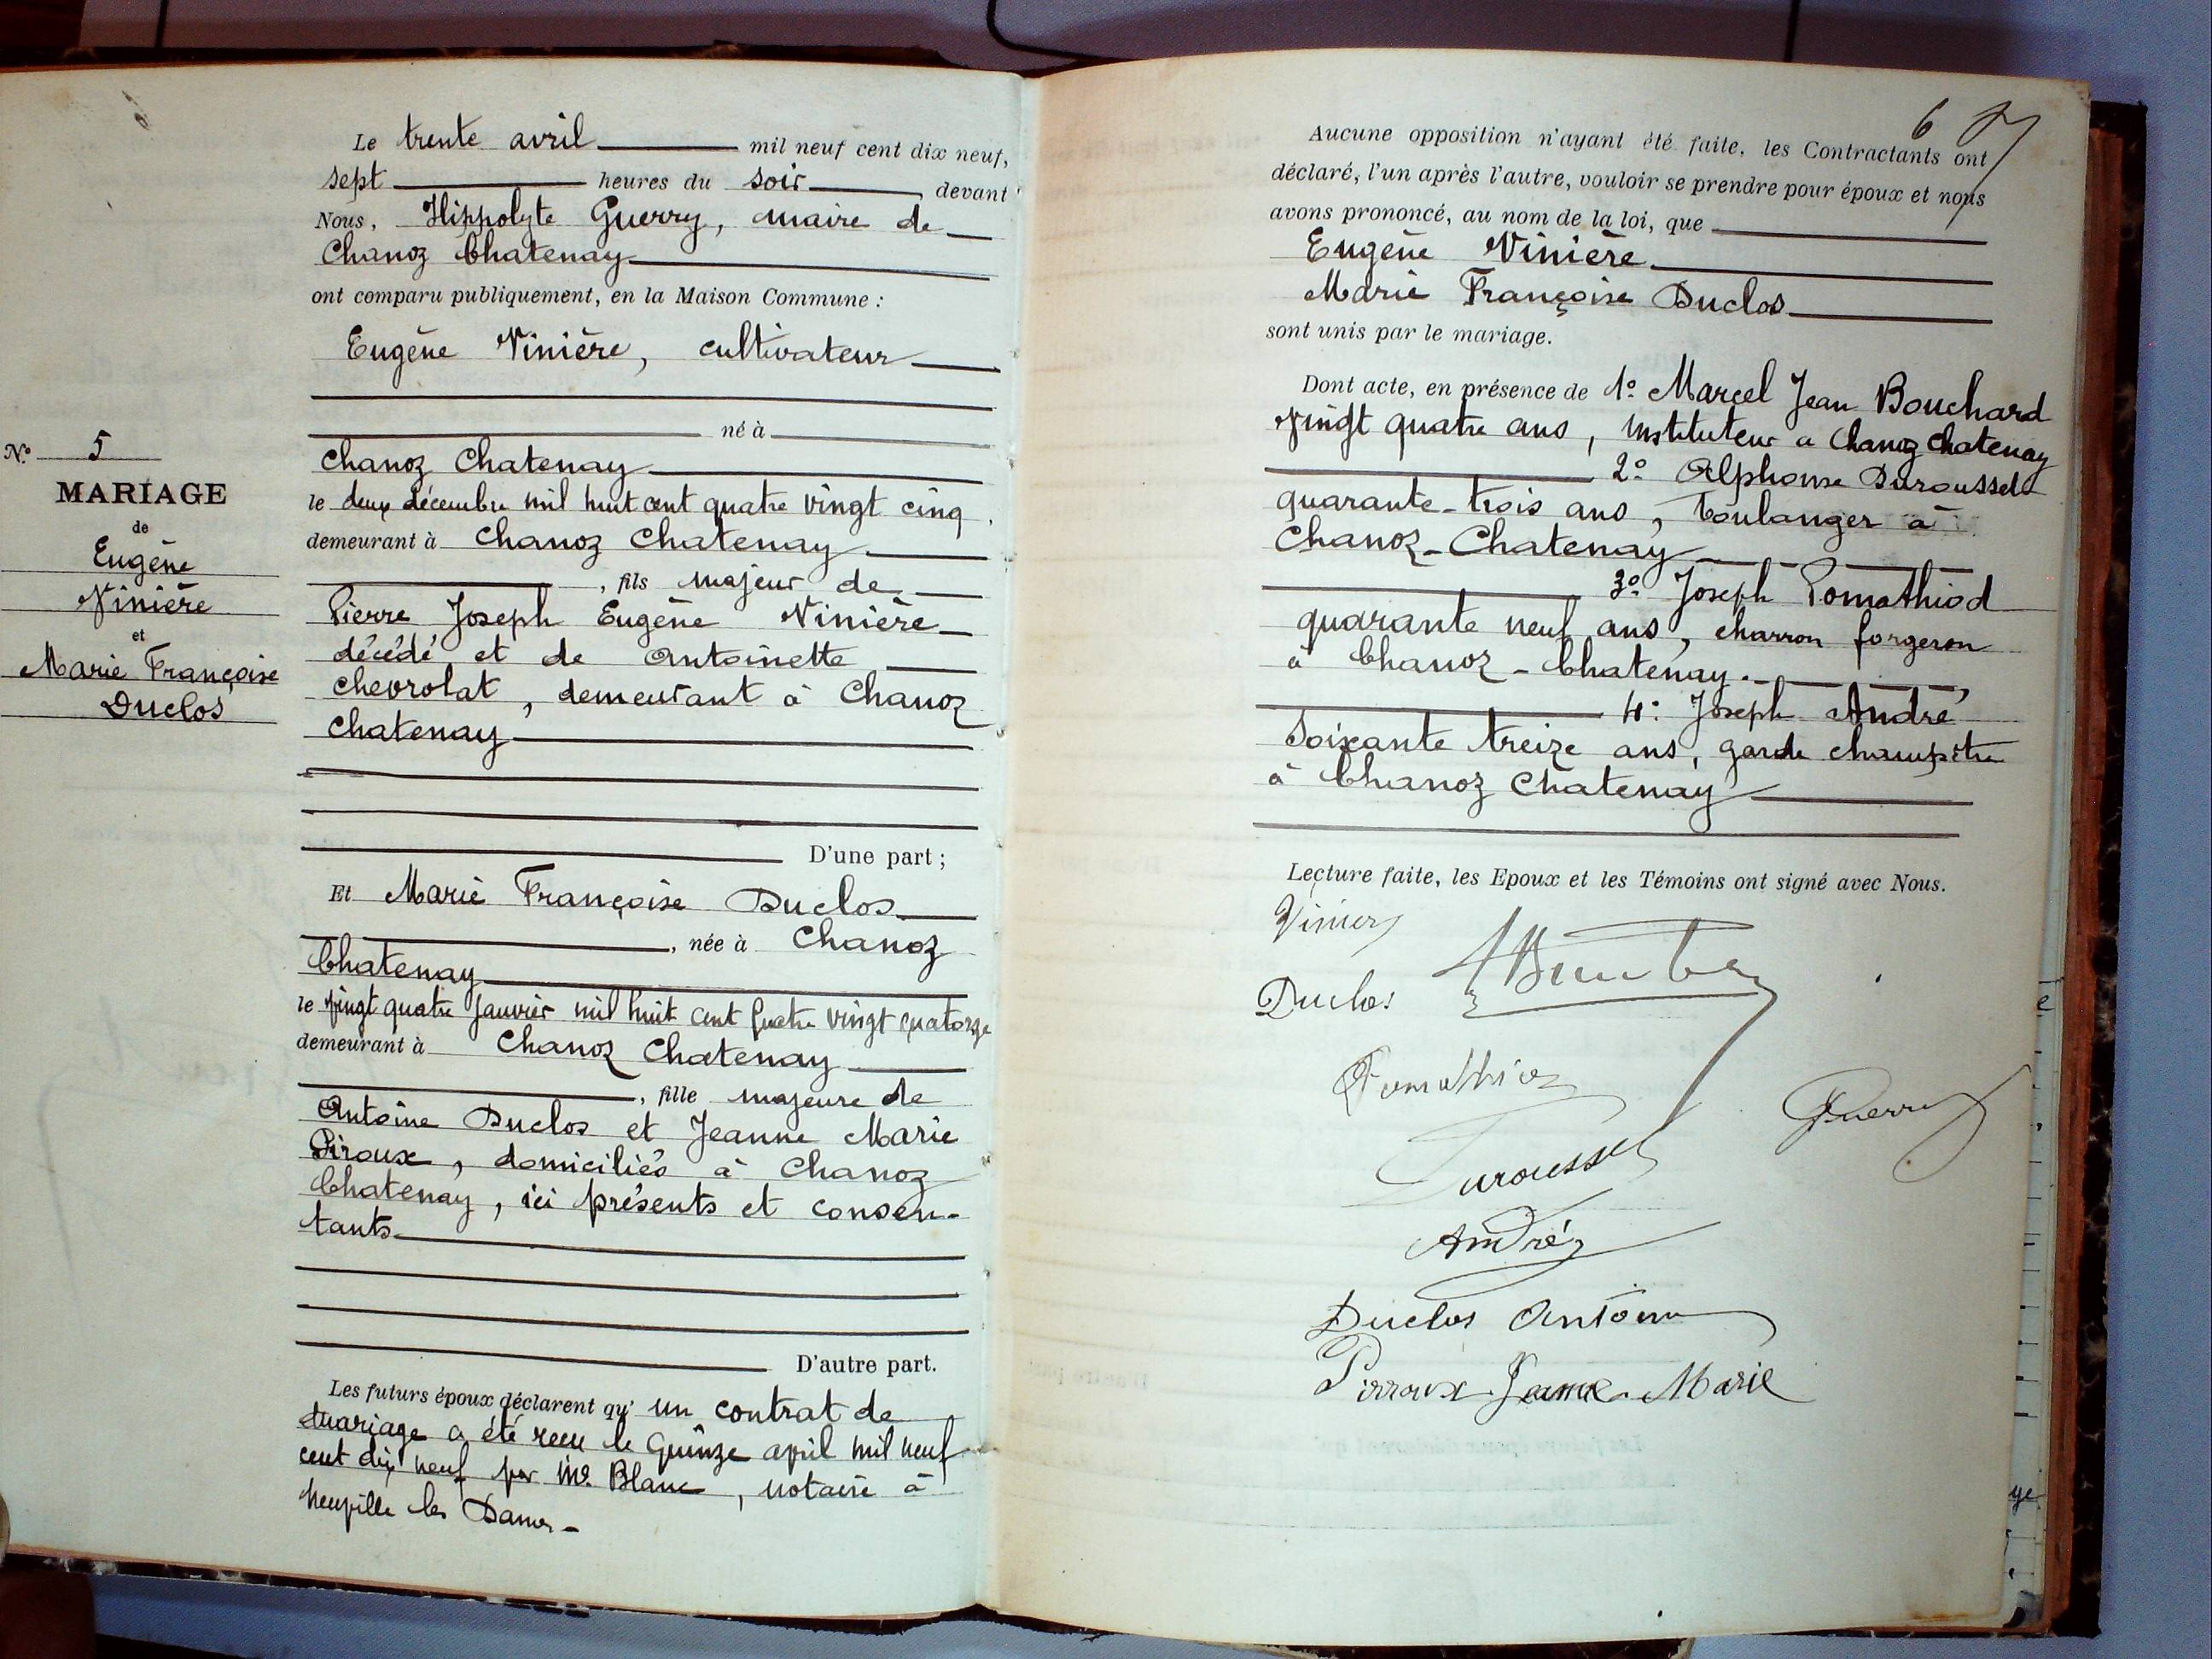 N° 5
MARIAGE
de
Eugène
Vinière
et
Marie Françoise
Duclos
Le trente avril mil neuf cent dix neuf,
sept heures du soir devant
Nous, Hippolyte Guerry, maire de
Chanoz Chatenay
ont comparu publiquement, en la Maison Commune :
Eugène Vinière, cultivateur
né à
Chanoz Chatenay
le deux décembre mil huit cent quatre vingt cinq
demeurant à Chanoz Chatenay
, fils majeur de
Pierre Joseph Eugène Vinière
décédé et de Antoinette
Chevrolat, demeurant à Chanoz
Chatenay
D'une part ;
Et Marie Françoise Duclos
, née à Chanoz
Chatenay
le vingt quatre Janvier mil huit cent quatre vingt quatorze
demeurant à Chanoz Chatenay
, fille majeure de
Antoine Duclos et Jeanne Marie
Piroux, domiciliés à Chanoz
Chatenay, ici présents et consen-
tants
D'autre part.
Les futurs époux déclarent qu' un contrat de
mariage a été reçu le Quinze avril mil neuf
cent dix neuf par Me Blanc, notaire à
Neuville les Dames -
6
Aucune opposition n'ayant été faite, les Contractants ont
déclaré, l'un après l'autre, vouloir se prendre pour époux et nous
avons prononcé, au nom de la loi, que
Eugène Vinière
Marie Françoise Duclos
sont unis par le mariage.
Dont acte, en présence de 1° Marcel Jean Bouchard
Vingt quatre ans, Instituteur a Chanoz Chatenay
2° Alphonse Duroussel
quarante-trois ans, boulanger à
Chanoz-Chatenay
3° Joseph Pomathiod
quarante neuf ans, charron forgeron
à Chanoz-Chatenay.
4° Joseph André
Soixante treize ans, garde champêtre
à Chanoz Chatenay
Lecture faite, les Epoux et les Témoins ont signé avec Nous.
Vinier
Duclos
Pomathioz
Guerry
Duroussel
André
Duclos Antoine
Pirroux Jeanne Marie